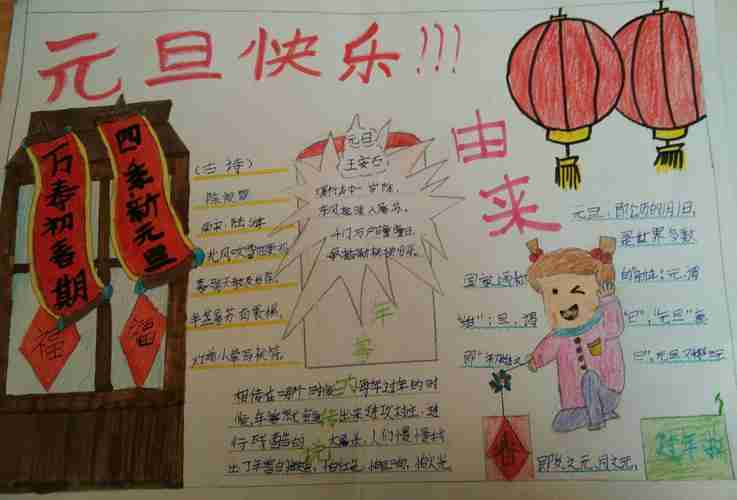 元旦快乐!!!
四季新元旦
万寿初春期
福
福
(古诗)
除夜雪
南宋 陆游
北风吹雪四更初,
嘉瑞天教及岁除。
半盏屠苏犹未举,
灯前小草写桃符。
元日
王安石
爆竹声中一岁除,
春风送暖入屠苏。
千门万户曈曈日,
总把新桃换旧符。
年
的
传
说
相传在
每年过年的时
候,年兽就会
出来进攻村庄,进
行残酷的
大屠杀,人们慢慢找
出了年兽的
怕红色,怕
怕火光
由来
元旦,即公历的1月1日,
是世界多数
国家通称
的新年。元,谓
"始";旦,谓
"日";"元旦"意
即
春
即岁之元,月之元,
过年啦